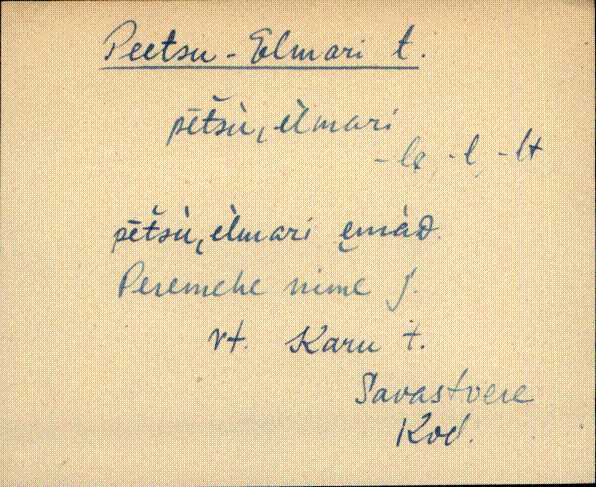 Peetsu-Elmari t.
pētšù‿èlmari
-le̮, -l, -lt
pētšù‿èlmari e̮màD.
Peremehe nime j.
vt. Karu t.
Savastvere
Kod.